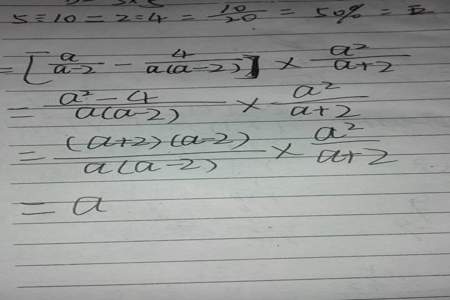 5÷10=2÷4=10/20=50%=五
=[a/(a-2) - 4/(a(a-2))] × a²/(a+2)
=(a²-4)/(a(a-2)) × a²/(a+2)
=(a+2)(a-2)/(a(a-2)) × a²/(a+2)
=a